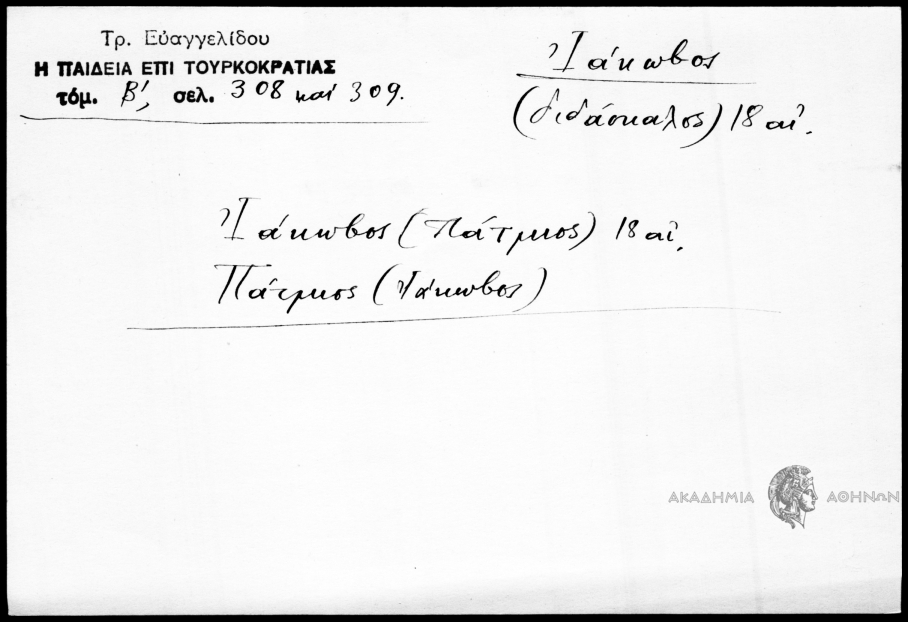 Τρ. Εὐαγγελίδου
Η ΠΑΙΔΕΙΑ ΕΠΙ ΤΟΥΡΚΟΚΡΑΤΙΑΣ
τόμ. Β', σελ. 308 καί 309.
Ἰάκωβος
(διδάσκαλος) 18 αἰ.
Ἰάκωβος (Πάτμιος) 18 αἰ.
Πάτμιος (Ἰάκωβος)
ΑΚΑΔΗΜΙΑ ΑΘΗΝΩΝ